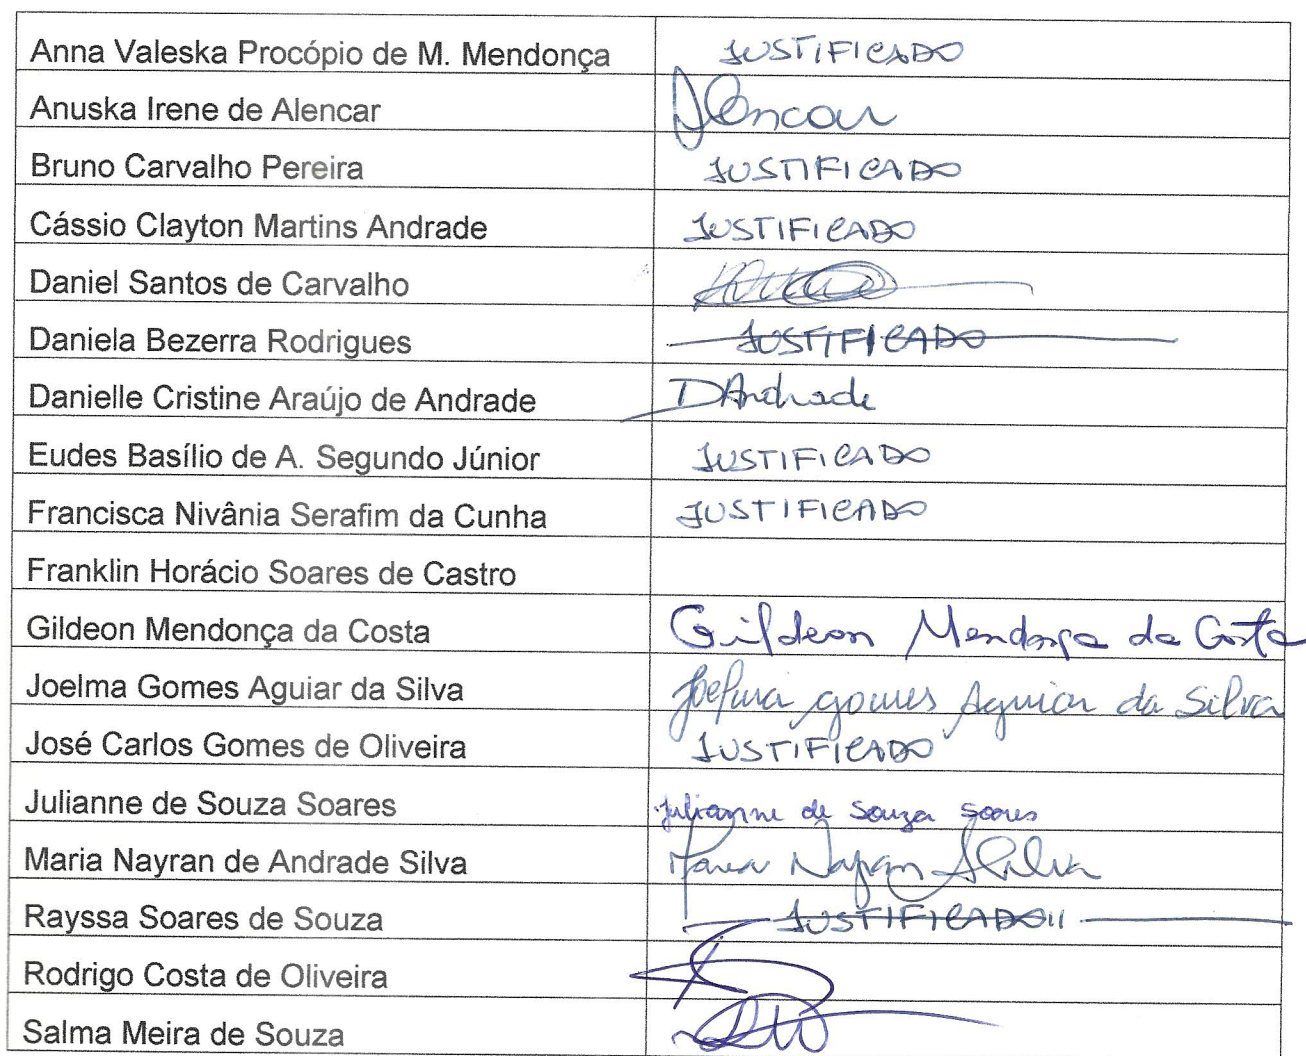 Anna Valeska Procópio de M. Mendonça JUSTIFICADO
Anuska Irene de Alencar Alencar
Bruno Carvalho Pereira JUSTIFICADO
Cássio Clayton Martins Andrade JUSTIFICADO
Daniel Santos de Carvalho
Daniela Bezerra Rodrigues JUSTIFICADO
Danielle Cristine Araújo de Andrade DAndrade
Eudes Basílio de A. Segundo Júnior JUSTIFICADO
Francisca Nivânia Serafim da Cunha JUSTIFICADO
Franklin Horácio Soares de Castro
Gildeon Mendonça da Costa Gildeon Mendonça da Costa
Joelma Gomes Aguiar da Silva Joelma gomes Aguiar da Silva
José Carlos Gomes de Oliveira JUSTIFICADO
Julianne de Souza Soares Julianne de Souza Soares
Maria Nayran de Andrade Silva Maria Nayran A Silva
Rayssa Soares de Souza JUSTIFICADO
Rodrigo Costa de Oliveira
Salma Meira de Souza